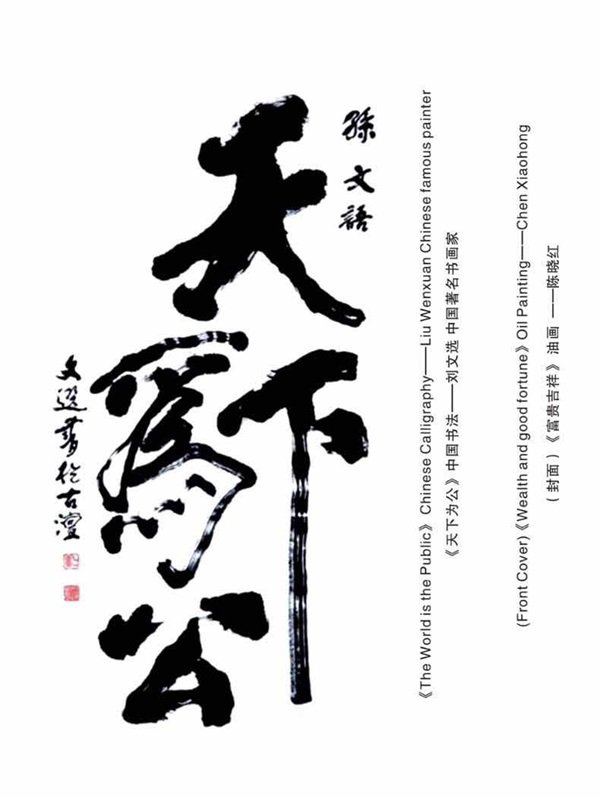 孫文語
天下為公
文選書於古瀘
《The World is the Public》 Chinese Calligraphy——Liu Wenxuan Chinese famous painter
《天下为公》中国书法——刘文选 中国著名书画家
(Front Cover)《Wealth and good fortune》Oil Painting——Chen Xiaohong
（封面）《富贵吉祥》 油画 ——陈晓红